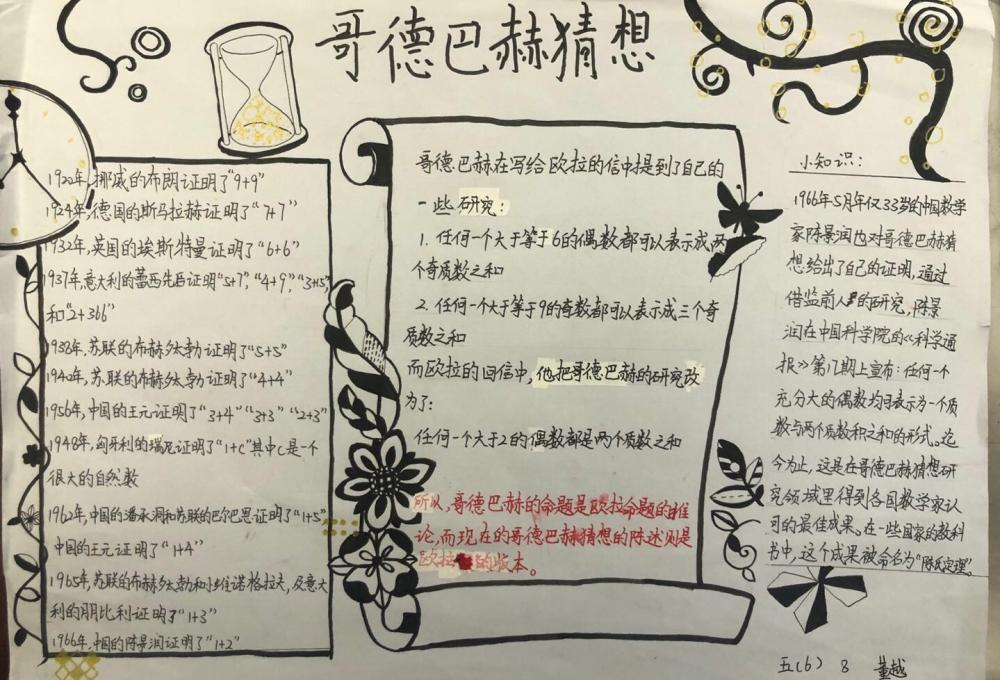 哥德巴赫猜想
1920年,挪威的布朗证明了“9+9”
1924年,德国的斯马拉赫证明了“7+7”
1932年,英国的埃斯特曼证明了“6+6”
1937年,意大利的蕾西先后证明“5+7”,“4+9”,“3+15”
和“2+366”
1938年,苏联的布赫夕太勃证明了“5+5”
1940年,苏联的布赫夕太勃证明了“4+4”
1956年,中国的王元证明了“3+4”“3+3”“2+3”
1948年,匈牙利的瑞尼证明了“1+C”其中C是一个
很大的自然数
1962年,中国的潘承洞和苏联的巴尔巴恩证明了“1+5”
中国的王元证明了“1+4”
1965年,苏联的布赫夕太勃和小维诺格拉夫,及意大
利的朋比利证明了“1+3”
1966年,中国的陈景润证明了“1+2”
哥德巴赫在写给欧拉的信中提到了自己的
一些研究:
1. 任何一个大于等于6的偶数都可以表示成两
个奇质数之和
2. 任何一个大于等于9的奇数都可以表示成三个奇
质数之和
而欧拉的回信中,他把哥德巴赫的研究改
为了:
任何一个大于2的偶数都是两个质数之和
所以,哥德巴赫的命题是欧拉命题的推
论,而现在的哥德巴赫猜想的陈述则是
欧拉的版本。
小知识:
1966年5月年仅33岁的中国数学
家陈景润也对哥德巴赫猜
想给出了自己的证明,通过
借监前人的研究,陈景
润在中国科学院的《科学通
报》第17期上宣布:任何一个
充分大的偶数均可表示为一个质
数与两个质数积之和的形式。迄
今为止,这是在哥德巴赫猜想研
究领域里得到各国数学家认
可的最佳成果。在一些国家的教科
书中,这个成果被命名为“陈氏定理”。
五(6) 8 董越